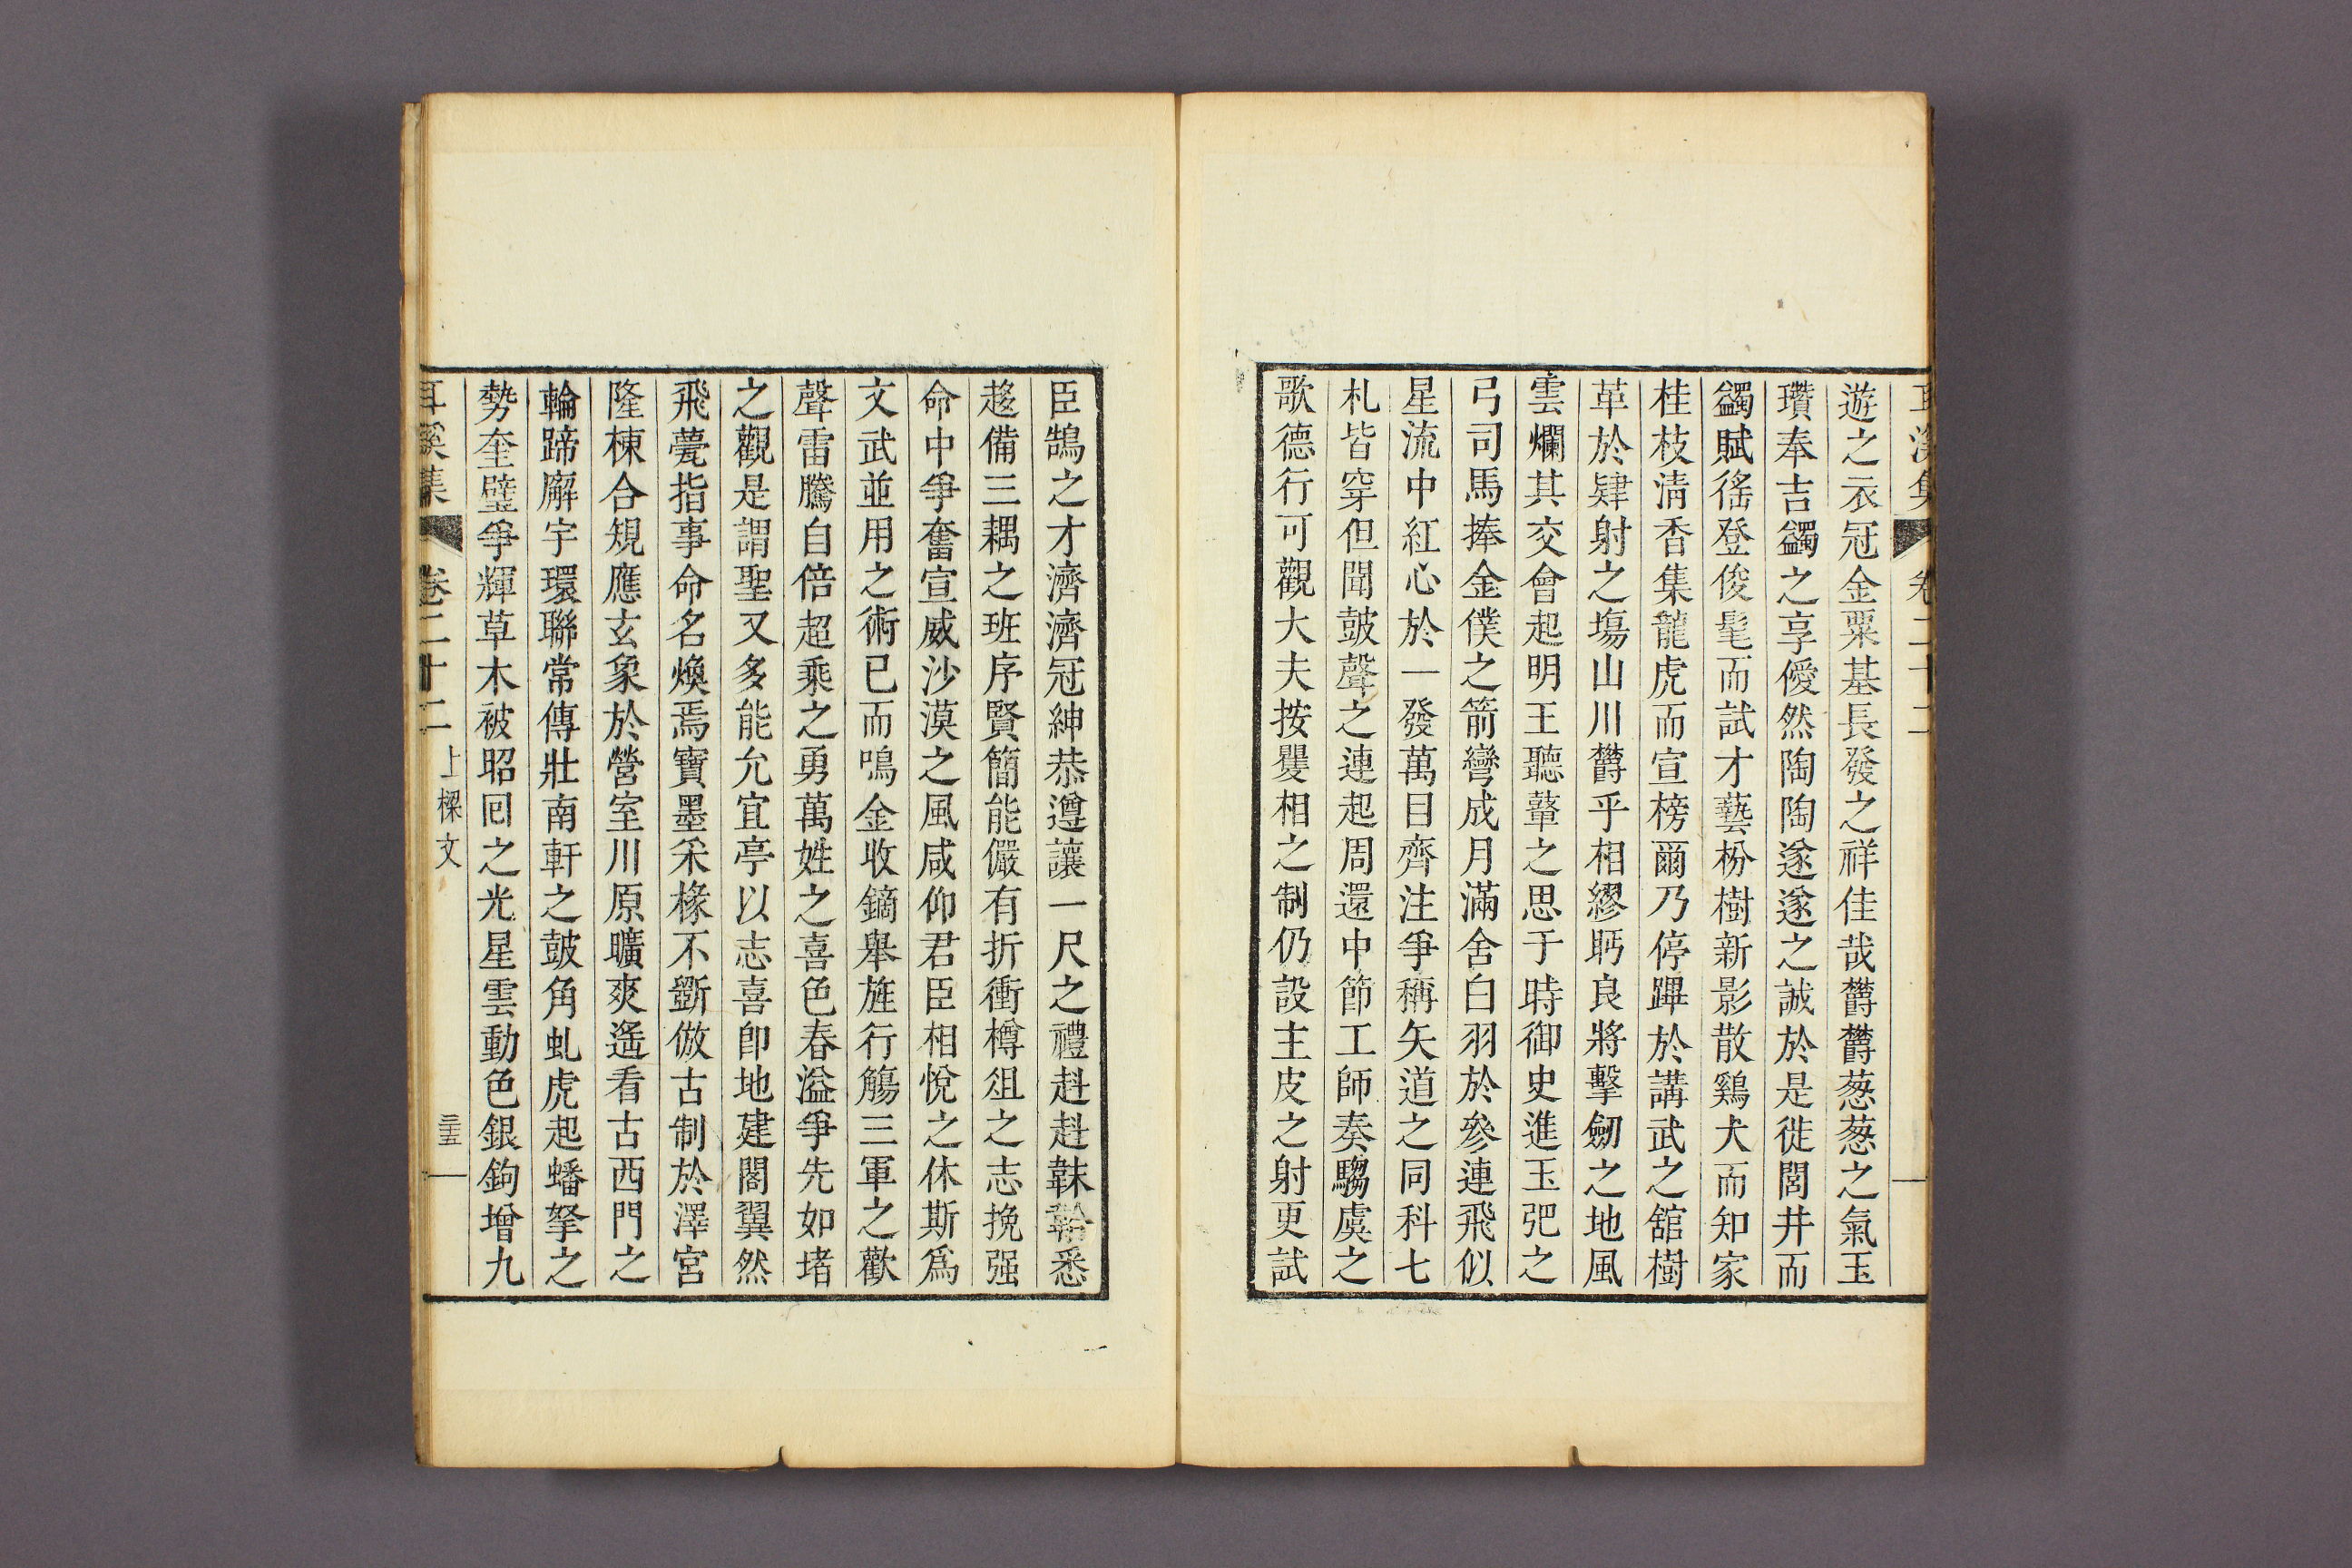 耳溪集 卷二十二
遊之衣冠金粟基長發之祥佳哉欝欝葱葱之氣玉
瓚奉吉蠲之享僾然陶陶遂遂之誠於是徙閭井而
蠲賦徭登俊髦而試才藝枌樹新影散鷄犬而知家
桂枝淸香集龍虎而宣榜爾乃停蹕於講武之舘樹
革於肄射之塲山川欝乎相繆眄良將擊劒之地風
雲爛其交會起明王聽鼙之思于時御史進玉弝之
弓司馬捧金僕之箭彎成月滿舍白羽於參連飛似
星流中紅心於一發萬目齊注爭稱矢道之同科七
札皆穿但聞皷聲之連起周還中節工師奏騶虞之
歌德行可觀大夫按矍相之制仍設主皮之射更試
臣鵠之才濟濟冠紳恭遵讓一尺之禮赳赳韎韐悉
趍備三耦之班序賢簡能儼有折衝樽俎之志挽强
命中爭奮宣威沙漠之風咸仰君臣相悅之休斯爲
文武並用之術已而鳴金收鏑舉旌行觴三軍之歡
聲雷騰自倍超乘之勇萬姓之喜色春溢爭先如堵
之觀是謂聖又多能允宜亭以志喜卽地建閣翼然
飛甍指事命名煥焉寶墨采椽不斲倣古制於澤宮
隆棟合規應玄象於營室川原曠爽遙看古西門之
輪蹄廨宇環聯常傳壯南軒之皷角虬虎起蟠拏之
勢奎璧爭輝草木被昭回之光星雲動色銀鉤增九
耳溪集 卷二十二 上樑文 三五